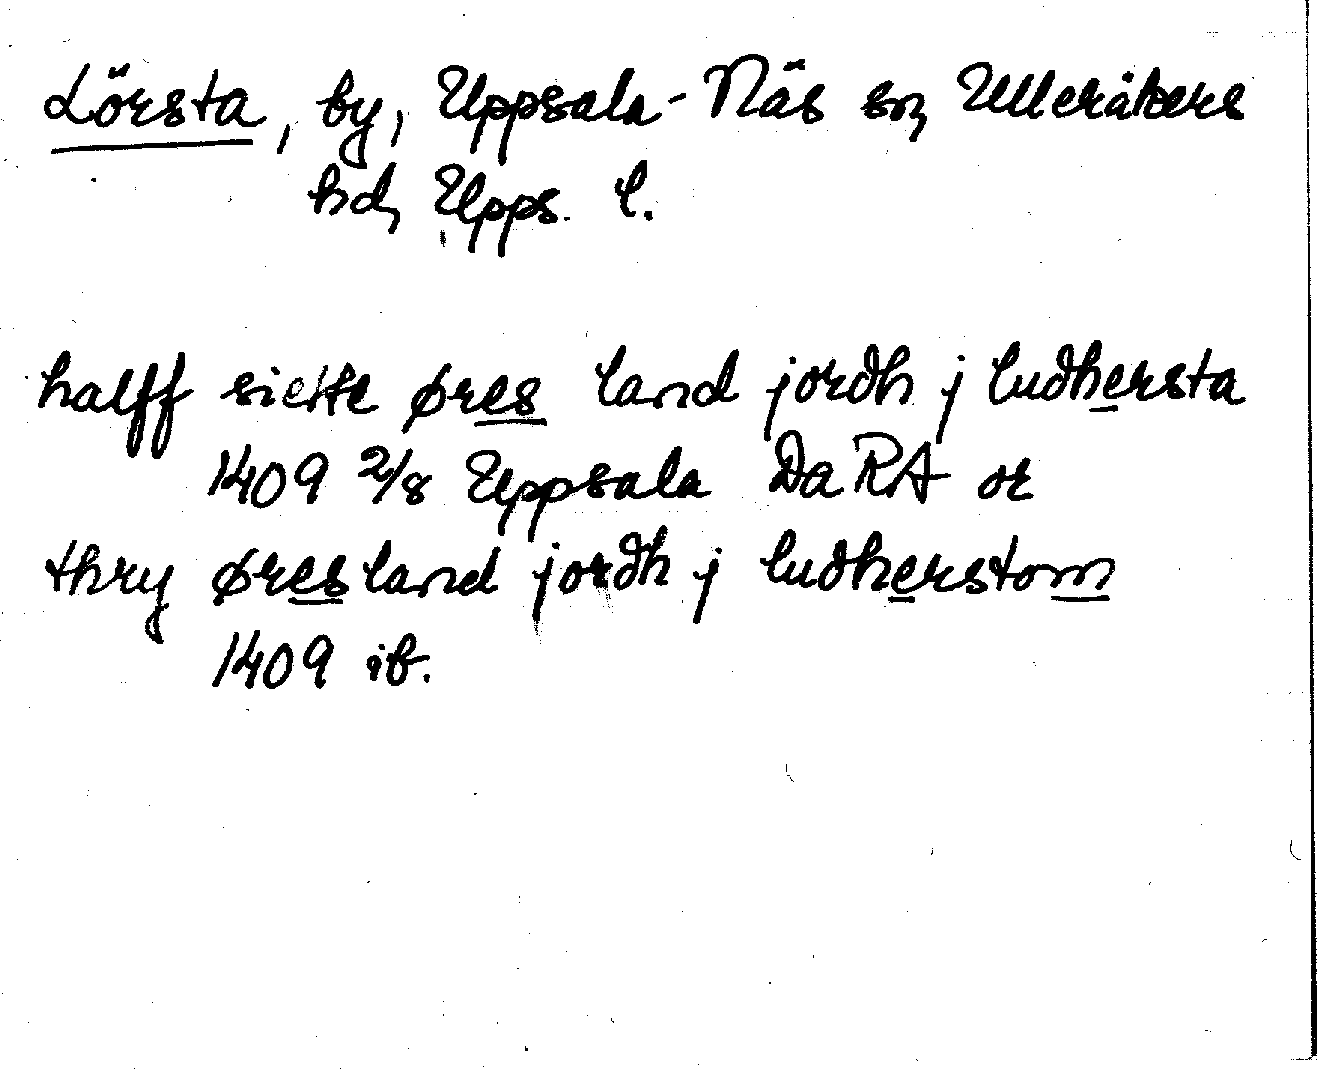 Lörsta, by, Uppsala-Näs sn, Ulleråkers
hd, Upps. l.
halff siette øres land jordh j ludhersta
1409 2/8 Uppsala DaRA or
thry øresland jordh j ludherstom
1409 ib.